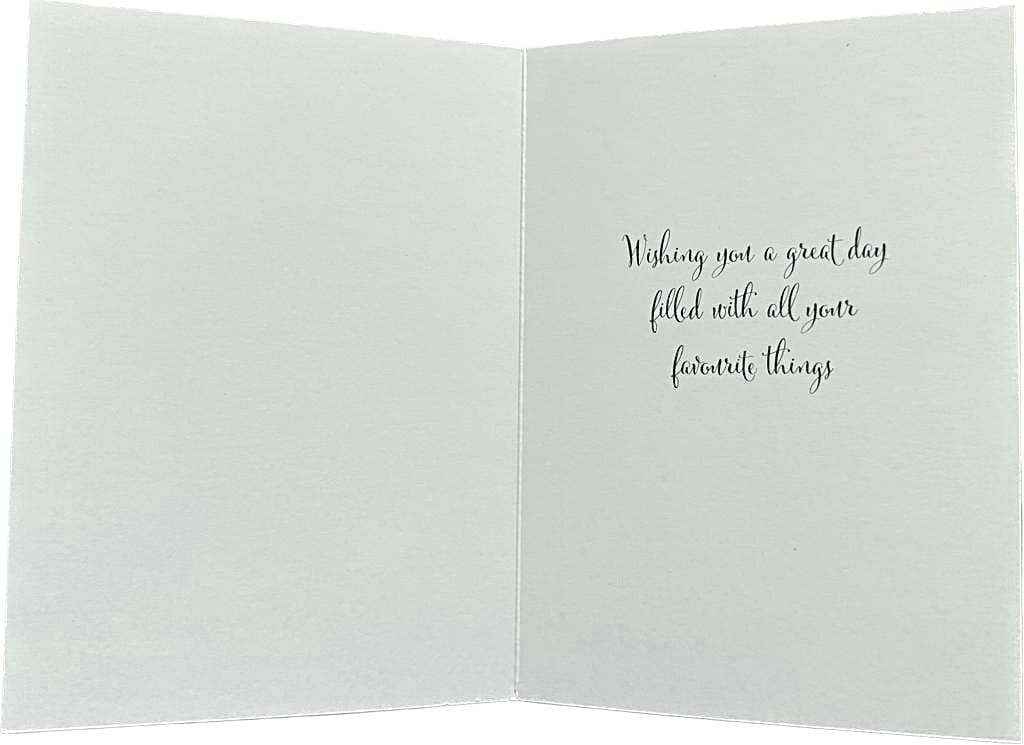 Wishing you a great day
filled with all your
favourite things